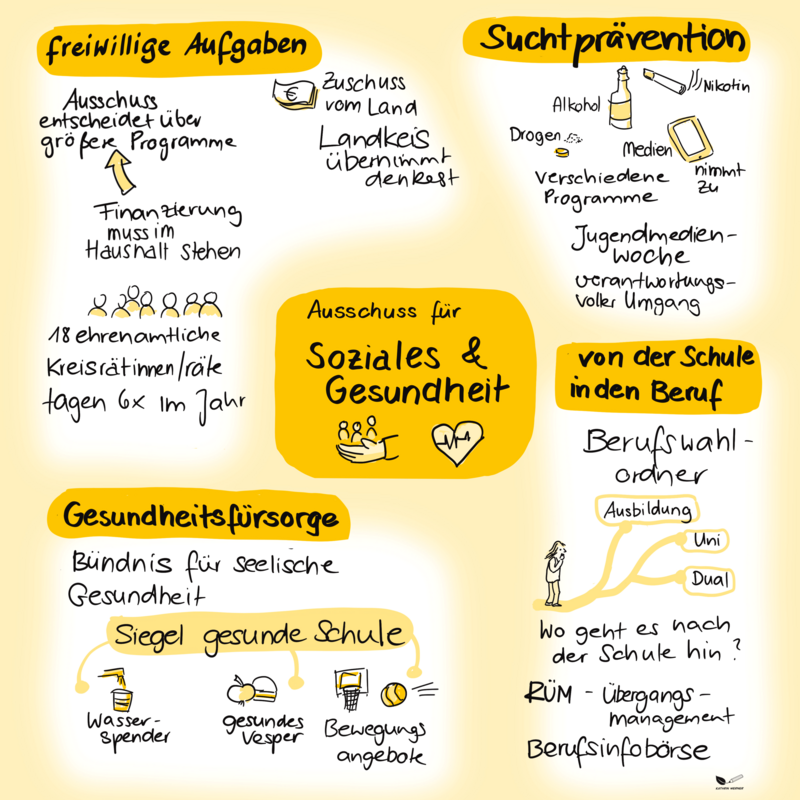 freiwillige Aufgaben
Ausschuss
entscheidet über
größere Programme
Finanzierung
muss im
Haushalt stehen
Zuschuss
vom Land
Landkeis
übernimmt
den Rest
18 ehrenamtliche
Kreisrätinnen/räte
tagen 6x im Jahr
Suchtprävention
Alkohol
Nikotin
Drogen
Medien
nimmt
zu
verschiedene
Programme
Jugendmedien-
woche
verantwortungs-
voller Umgang
Ausschuss für
Soziales &
Gesundheit
von der Schule
in den Beruf
Berufswahl-
ordner
Ausbildung
Uni
Dual
Wo geht es nach
der Schule hin?
RÜM - Übergangs-
management
Berufsinfobörse
Gesundheitsfürsorge
Bündnis für seelische
Gesundheit
Siegel gesunde Schule
Wasser-
spender
gesundes
Vesper
Bewegungs
angebote